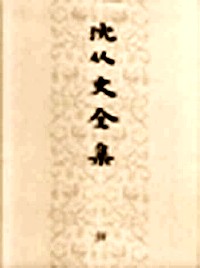 沈从文全集